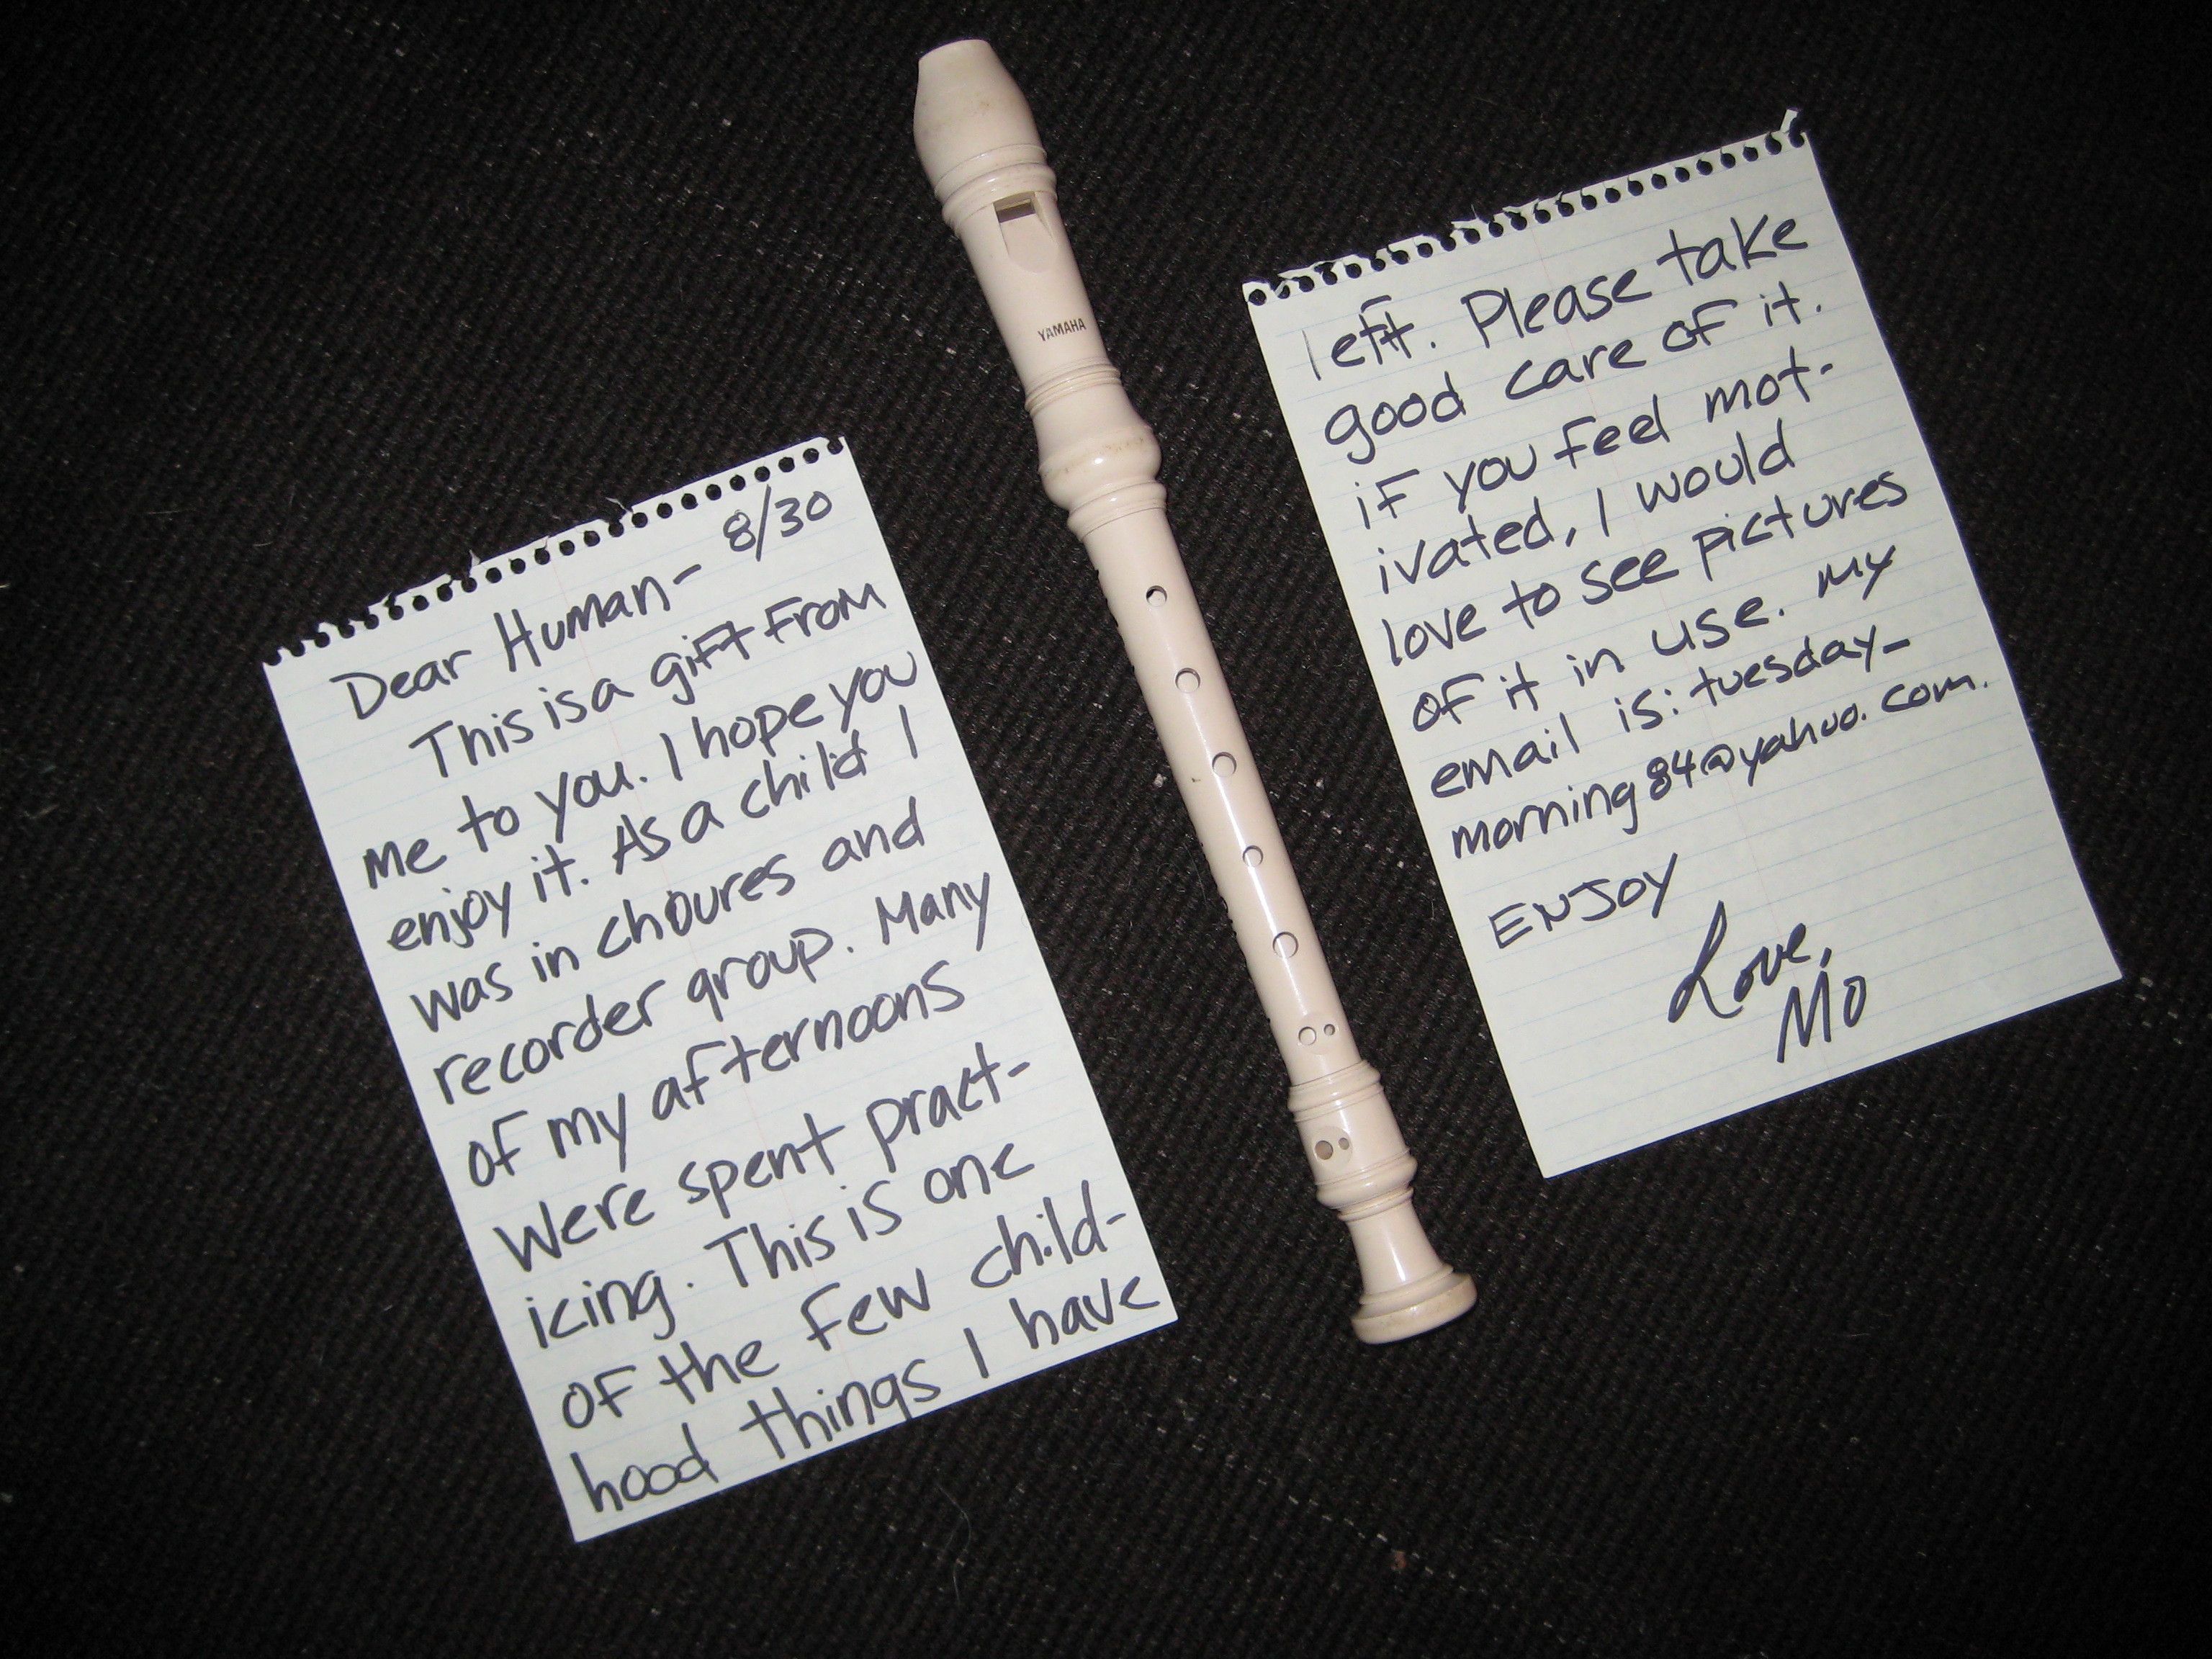 8/30
Dear Human-
This is a gift from
me to you. I hope you
enjoy it. As a child I
was in choures and
recorder group. Many
of my afternoons
were spent pract-
icing. This is one
of the few child-
hood things I have
YAMAHA
left. Please take
good care of it.
if you feel mot-
ivated, I would
love to see pictures
of it in use. My
email is: tuesday_
morning84@yahoo.com.
ENJOY
Love,
Mo